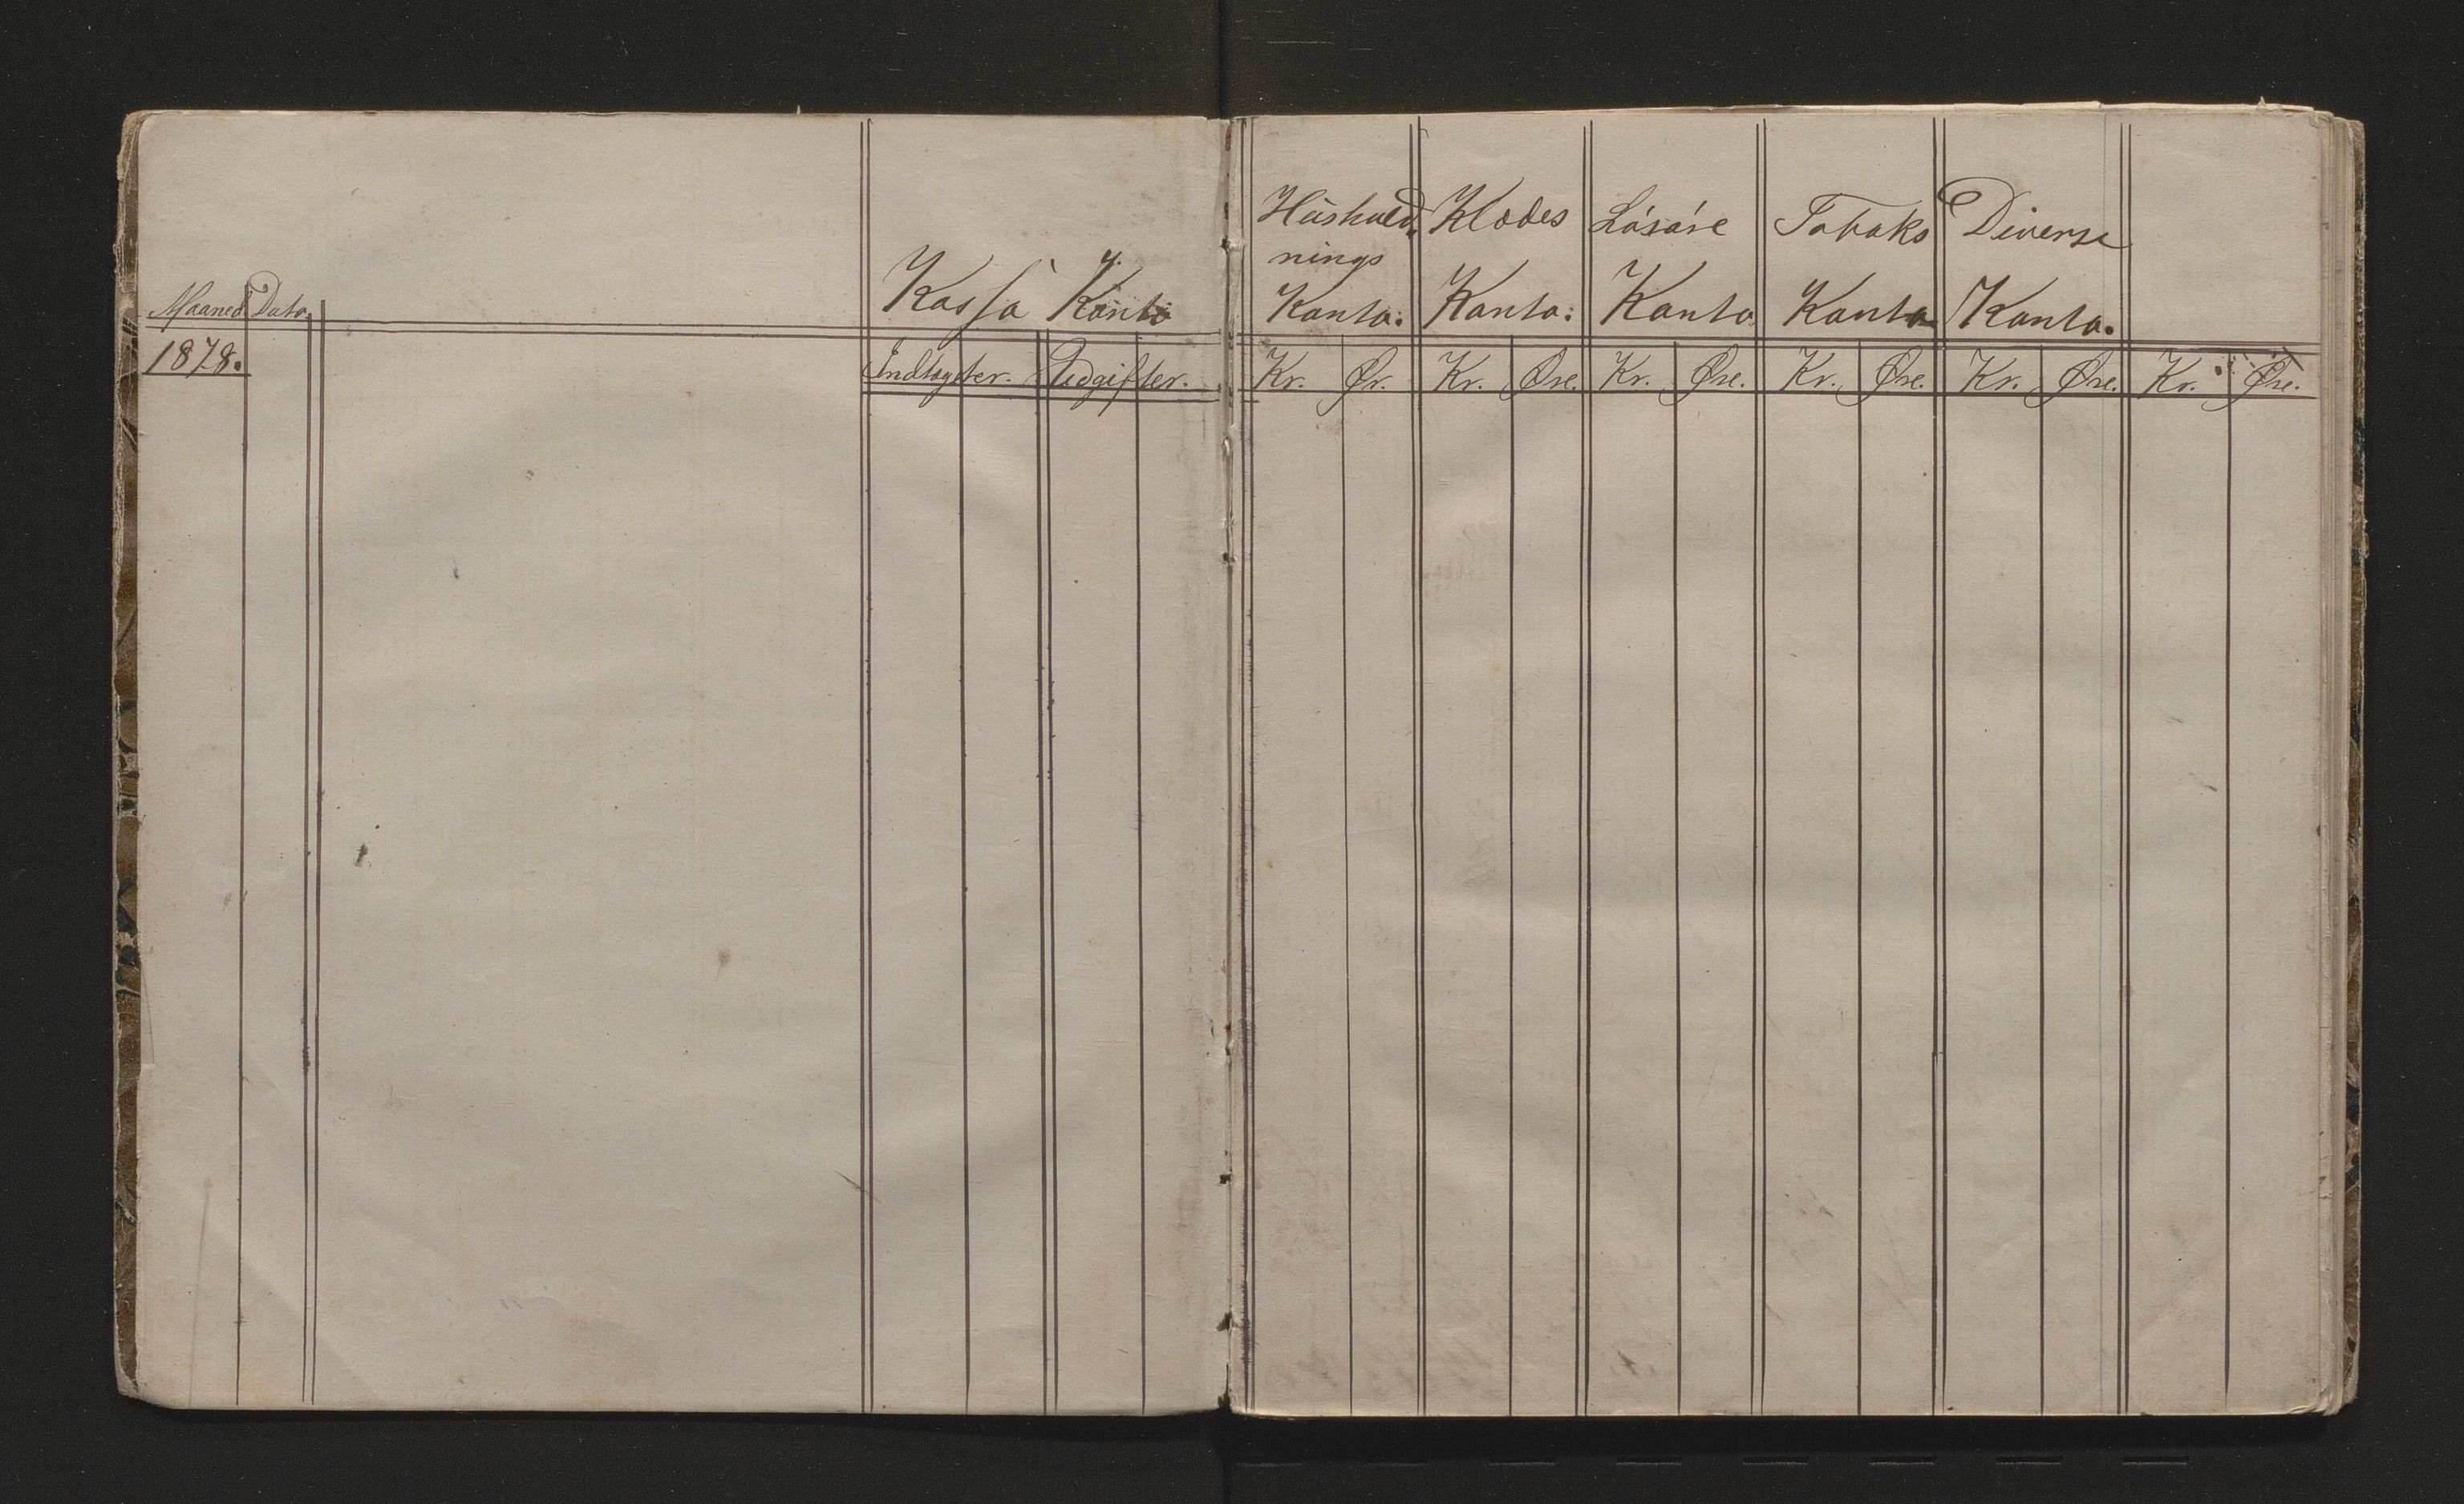 Maaned Dato.
1878.
Kassa Konto
Indtægter. Udgifter.
Hüshold,
nings
Konto:
Klædes
Konto:
Konto
Tobaks
Konto
Diverse
Konto.
Kr. Ør. Kr. Øre. Kr. Øre. Kr. Øre. Kr. Øre. Kr. Øre.